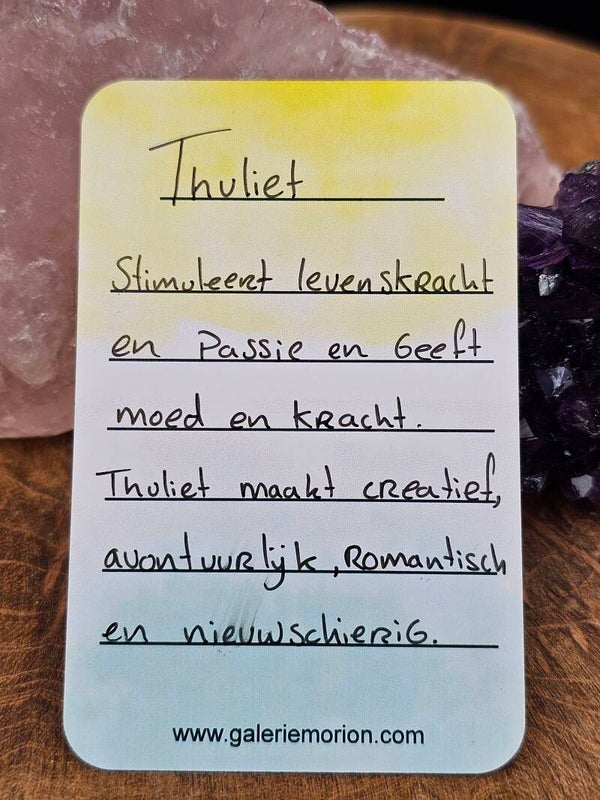 Thuliet
Stimuleert levenskracht
en Passie en Geeft
moed en kracht.
Thuliet maakt creatief,
avontuurlijk, Romantisch
en nieuwschierig.
www.galeriemorion.com